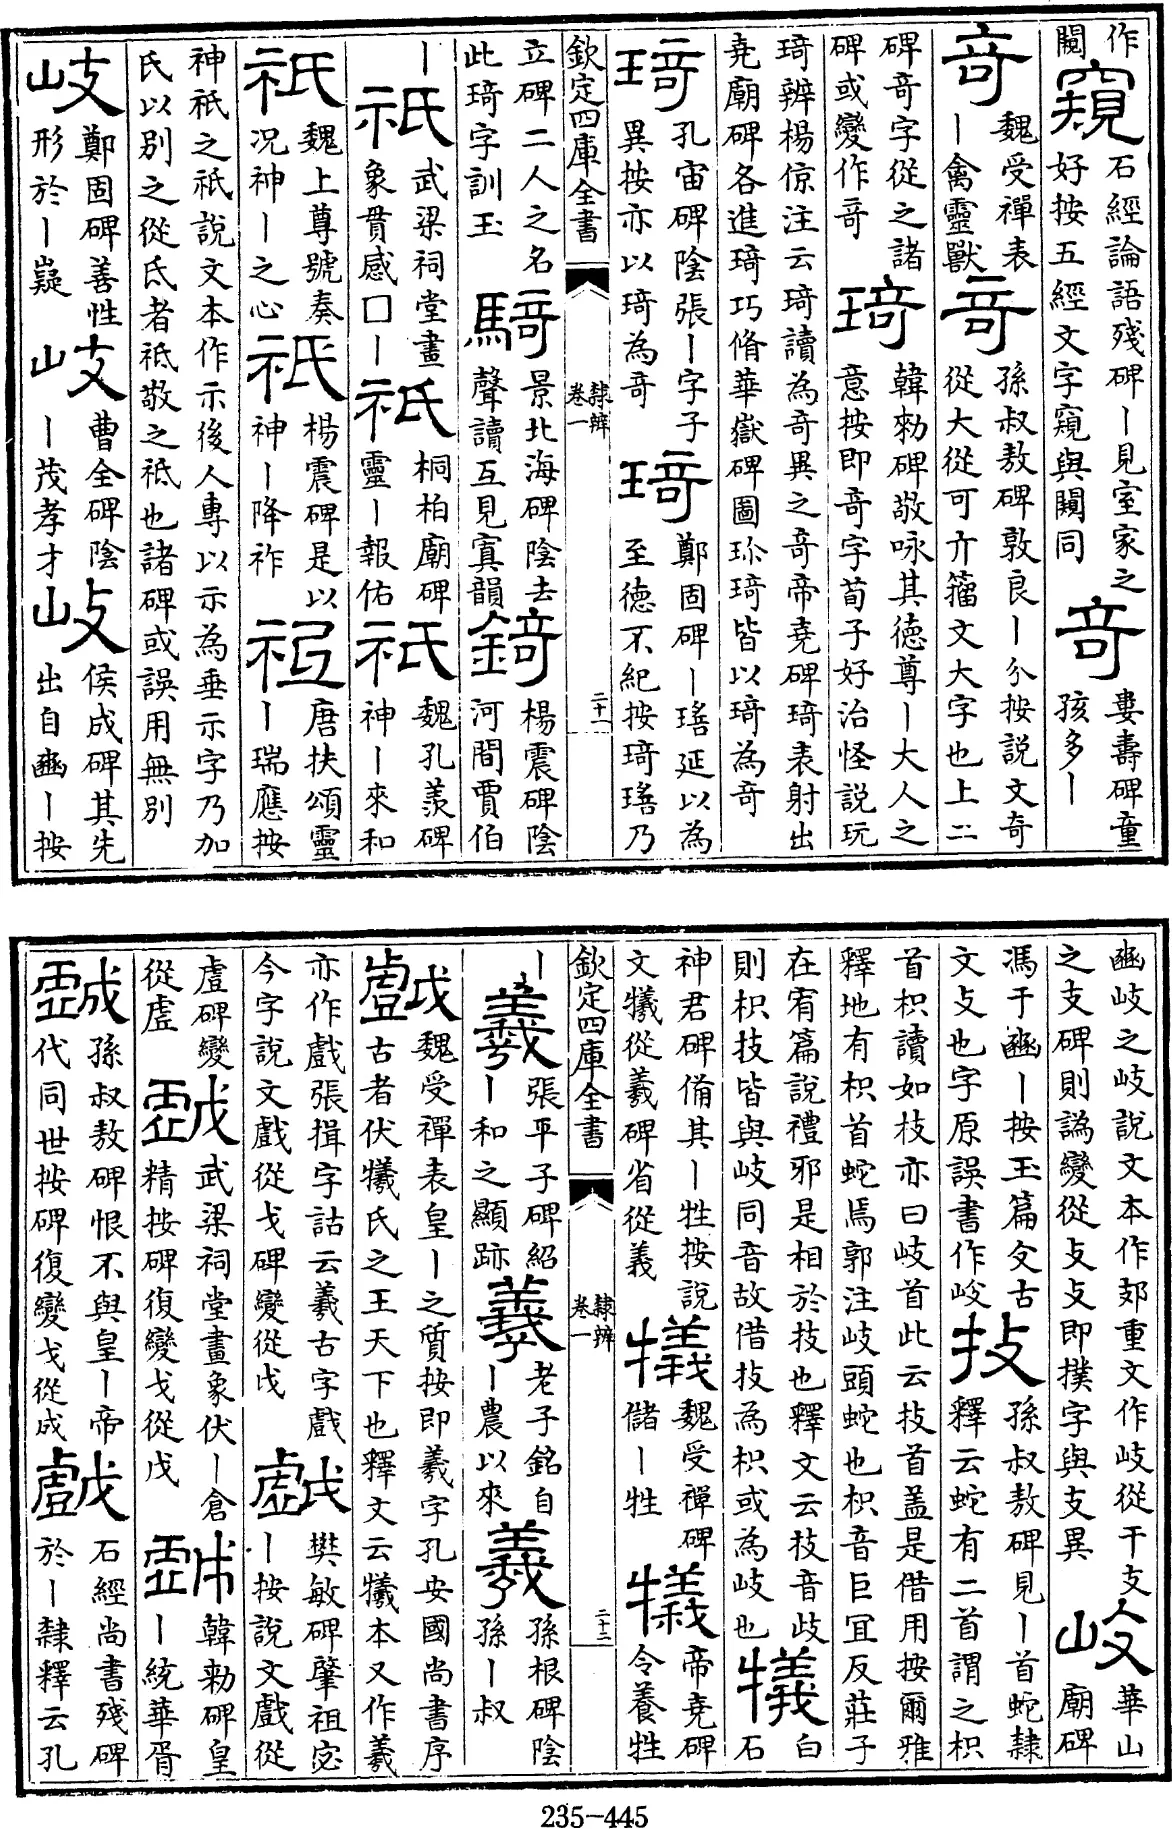 作闚窺石經論語殘碑丨見室家之好按五經文字窺與闚同奇婁壽碑童孩多丨
奇魏受禪表丨禽靈獸奇孫叔敖碑敦良丨兮按說文奇從大從可亣籀文大字也上二
碑奇字從之諸碑或變作竒琦韓勑碑敬咏其德尊丨大人之意按即奇字荀子好治怪說玩
琦辨楊倞注云琦讀為奇異之奇帝堯碑琦表射出堯廟碑各進琦巧脩華嶽碑圖珎琦皆以琦為奇
琦孔宙碑陰張丨字子異按亦以琦為奇琦鄭固碑丨瑤延以為至德不紀按琦瑤乃
欽定四庫全書 隸辨卷一 二十一
立碑二人之名此琦字訓玉騎景北海碑陰去聲讀互見寘韻錡楊震碑陰河間賈伯
丨祇武梁祠堂畫象貫感口丨祇桐柏廟碑靈丨報佑祇魏孔羨碑神丨來和
祇魏上尊號奏况神丨之心祇楊震碑是以神丨降祚祇唐扶頌靈丨瑞應按
神祇之祇說文本作示後人專以示為垂示字乃加氏以別之從氐者祗敬之祗也諸碑或誤用無別
岐鄭固碑善性形於丨嶷岐曹全碑陰丨茂孝才岐侯成碑其先出自豳丨按
豳岐之岐說文本作郂重文作岐從干支之支碑則譌變從攴攴即撲字與支異岐華山廟碑
馮于豳丨按玉篇㝴古文攴也字原誤書作峻技孫叔敖碑見丨首蛇隸釋云蛇有二首謂之枳
首枳讀如枝亦曰岐首此云技首盖是借用按爾雅釋地有枳首蛇焉郭注岐頭蛇也枳音巨宜反莊子
在宥篇說禮邪是相於技也釋文云技音歧則枳技皆與岐同音故借技為枳或為岐也犧白石
神君碑脩其丨牲按說文犧從羲碑省從義犧魏受禪碑儲丨牲犧帝堯碑令養牲
欽定四庫全書 隸辨卷一 二十二
丨羲張平子碑紹丨和之顯跡羲老子銘自丨農以來羲孫根碑陰孫丨叔
戲魏受禪表皇丨之質按即羲字孔安國尚書序古者伏犧氏之王天下也釋文云犧本又作羲
亦作戲張揖字詁云羲古字戲今字說文戲從戈碑變從戊戲樊敏碑肇祖宓丨按說文戲從
䖒碑變從虛戲武梁祠堂畫象伏丨倉精按碑復變戈從戊戲韓勑碑皇丨統華胥
戲孫叔敖碑恨不與皇丨帝代同世按碑復變戈從成戲石經尚書殘碑於丨隸釋云孔
235-445